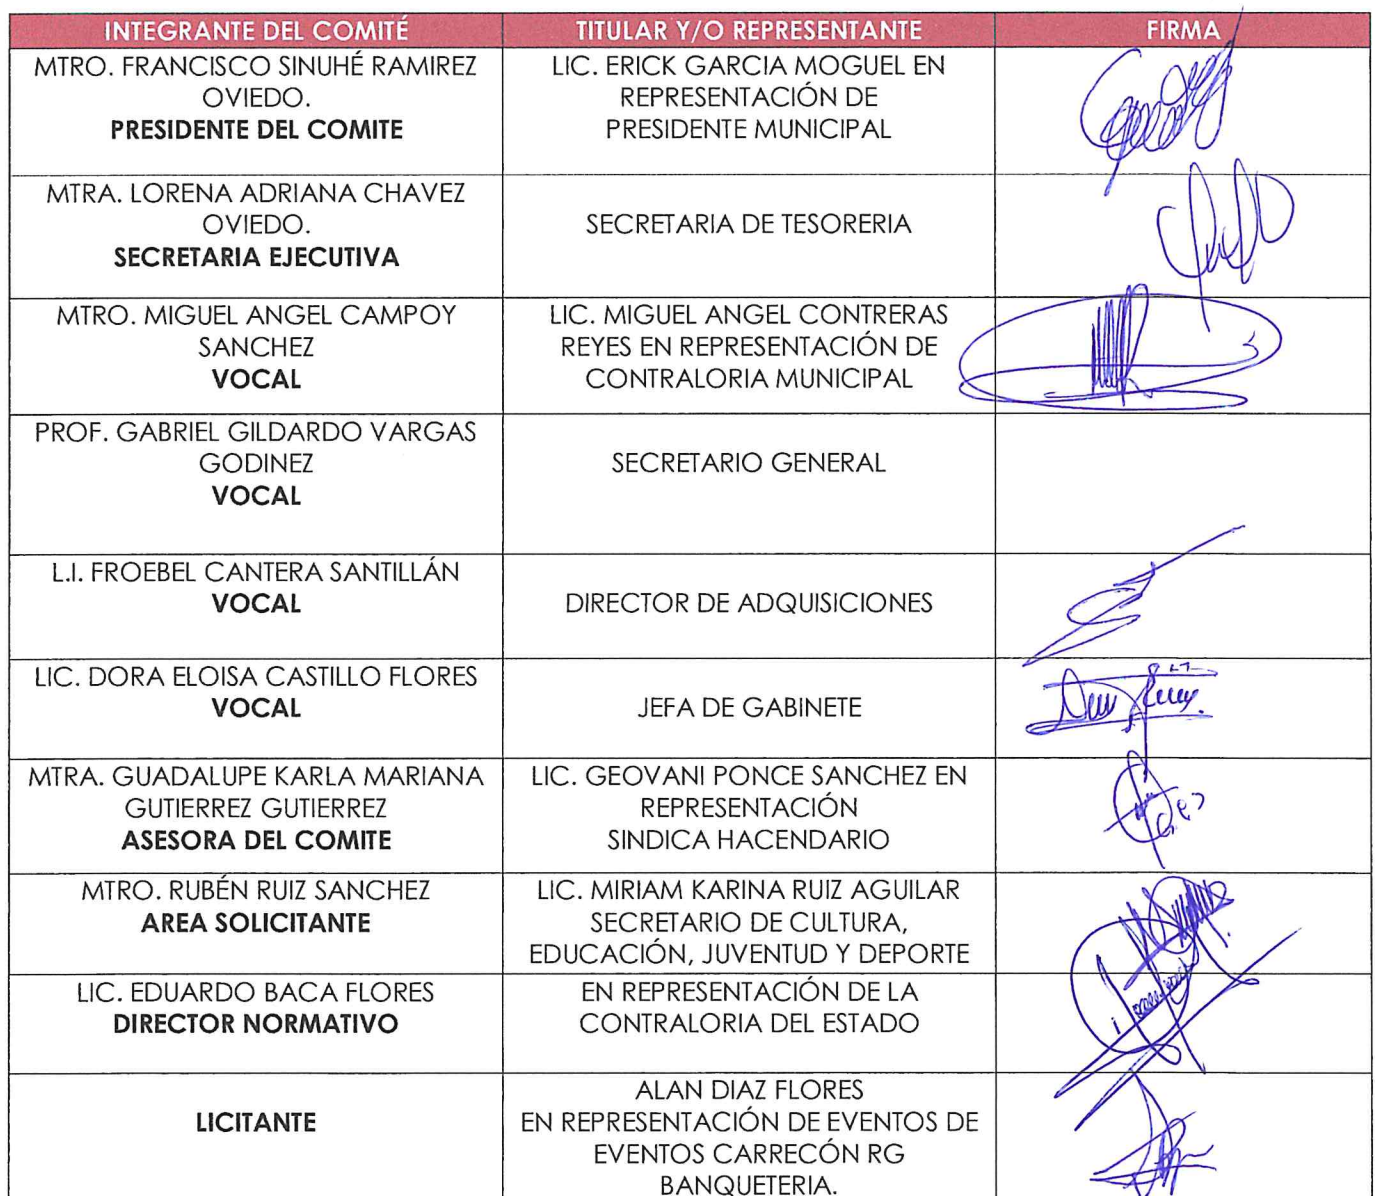 INTEGRANTE DEL COMITÉ
TITULAR Y/O REPRESENTANTE
FIRMA
MTRO. FRANCISCO SINUHÉ RAMIREZ
OVIEDO.
PRESIDENTE DEL COMITE
LIC. ERICK GARCIA MOGUEL EN
REPRESENTACIÓN DE
PRESIDENTE MUNICIPAL
MTRA. LORENA ADRIANA CHAVEZ
OVIEDO.
SECRETARIA EJECUTIVA
SECRETARIA DE TESORERIA
MTRO. MIGUEL ANGEL CAMPOY
SANCHEZ
VOCAL
LIC. MIGUEL ANGEL CONTRERAS
REYES EN REPRESENTACIÓN DE
CONTRALORIA MUNICIPAL
PROF. GABRIEL GILDARDO VARGAS
GODINEZ
VOCAL
SECRETARIO GENERAL
L.I. FROEBEL CANTERA SANTILLÁN
VOCAL
DIRECTOR DE ADQUISICIONES
LIC. DORA ELOISA CASTILLO FLORES
VOCAL
JEFA DE GABINETE
MTRA. GUADALUPE KARLA MARIANA
GUTIERREZ GUTIERREZ
ASESORA DEL COMITE
LIC. GEOVANI PONCE SANCHEZ EN
REPRESENTACIÓN
SINDICA HACENDARIO
MTRO. RUBÉN RUIZ SANCHEZ
AREA SOLICITANTE
LIC. MIRIAM KARINA RUIZ AGUILAR
SECRETARIO DE CULTURA,
EDUCACIÓN, JUVENTUD Y DEPORTE
LIC. EDUARDO BACA FLORES
DIRECTOR NORMATIVO
EN REPRESENTACIÓN DE LA
CONTRALORIA DEL ESTADO
LICITANTE
ALAN DIAZ FLORES
EN REPRESENTACIÓN DE EVENTOS DE
EVENTOS CARRECÓN RG
BANQUETERIA.